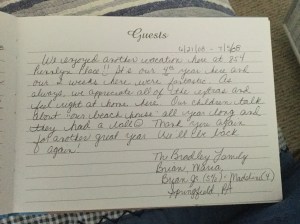 Guests
6/21/08 - 7/5/08
We enjoyed another vacation here at 254
Place!! It's our 8th year here and
our 2 weeks here were fantastic. As
always, we appreciate all of the extras and
feel right at home here. Our children talk
about "our beach house" all year long and
they had a ball☺ Thank you again
for another great year. We'll be back
again!
The Bradley Family
Brian, Maria
Brian Jr. (5½) - Madeline (4)
Springfield, PA